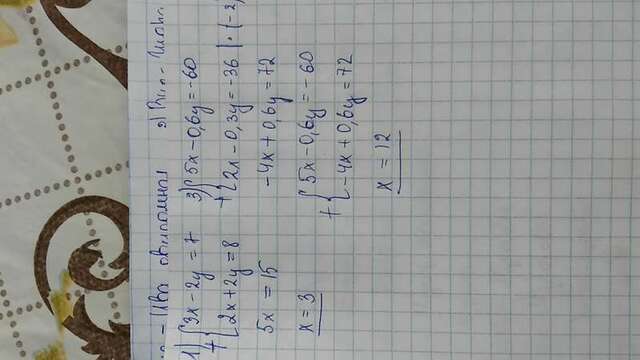 1) 3x - 2y = 7
+ 2x + 2y = 8
5x = 15
x = 3
3) 5x - 0,6y = -60
+ 2x - 0,3y = -36 | · (-2
-4x + 0,6y = 72
+ 5x - 0,6y = -60
-4x + 0,6y = 72
x = 12